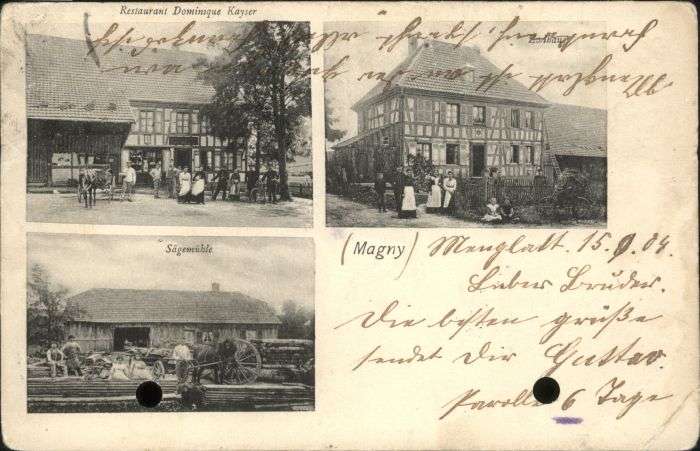 Restaurant Dominique Kayser
Zollhaus
Sägemühle
(Magny) Menglatt. 15. 9. 04.
Lieber Bruder.
Die besten grüße
sendet Dir Gustav.
Parolle 6 Tage